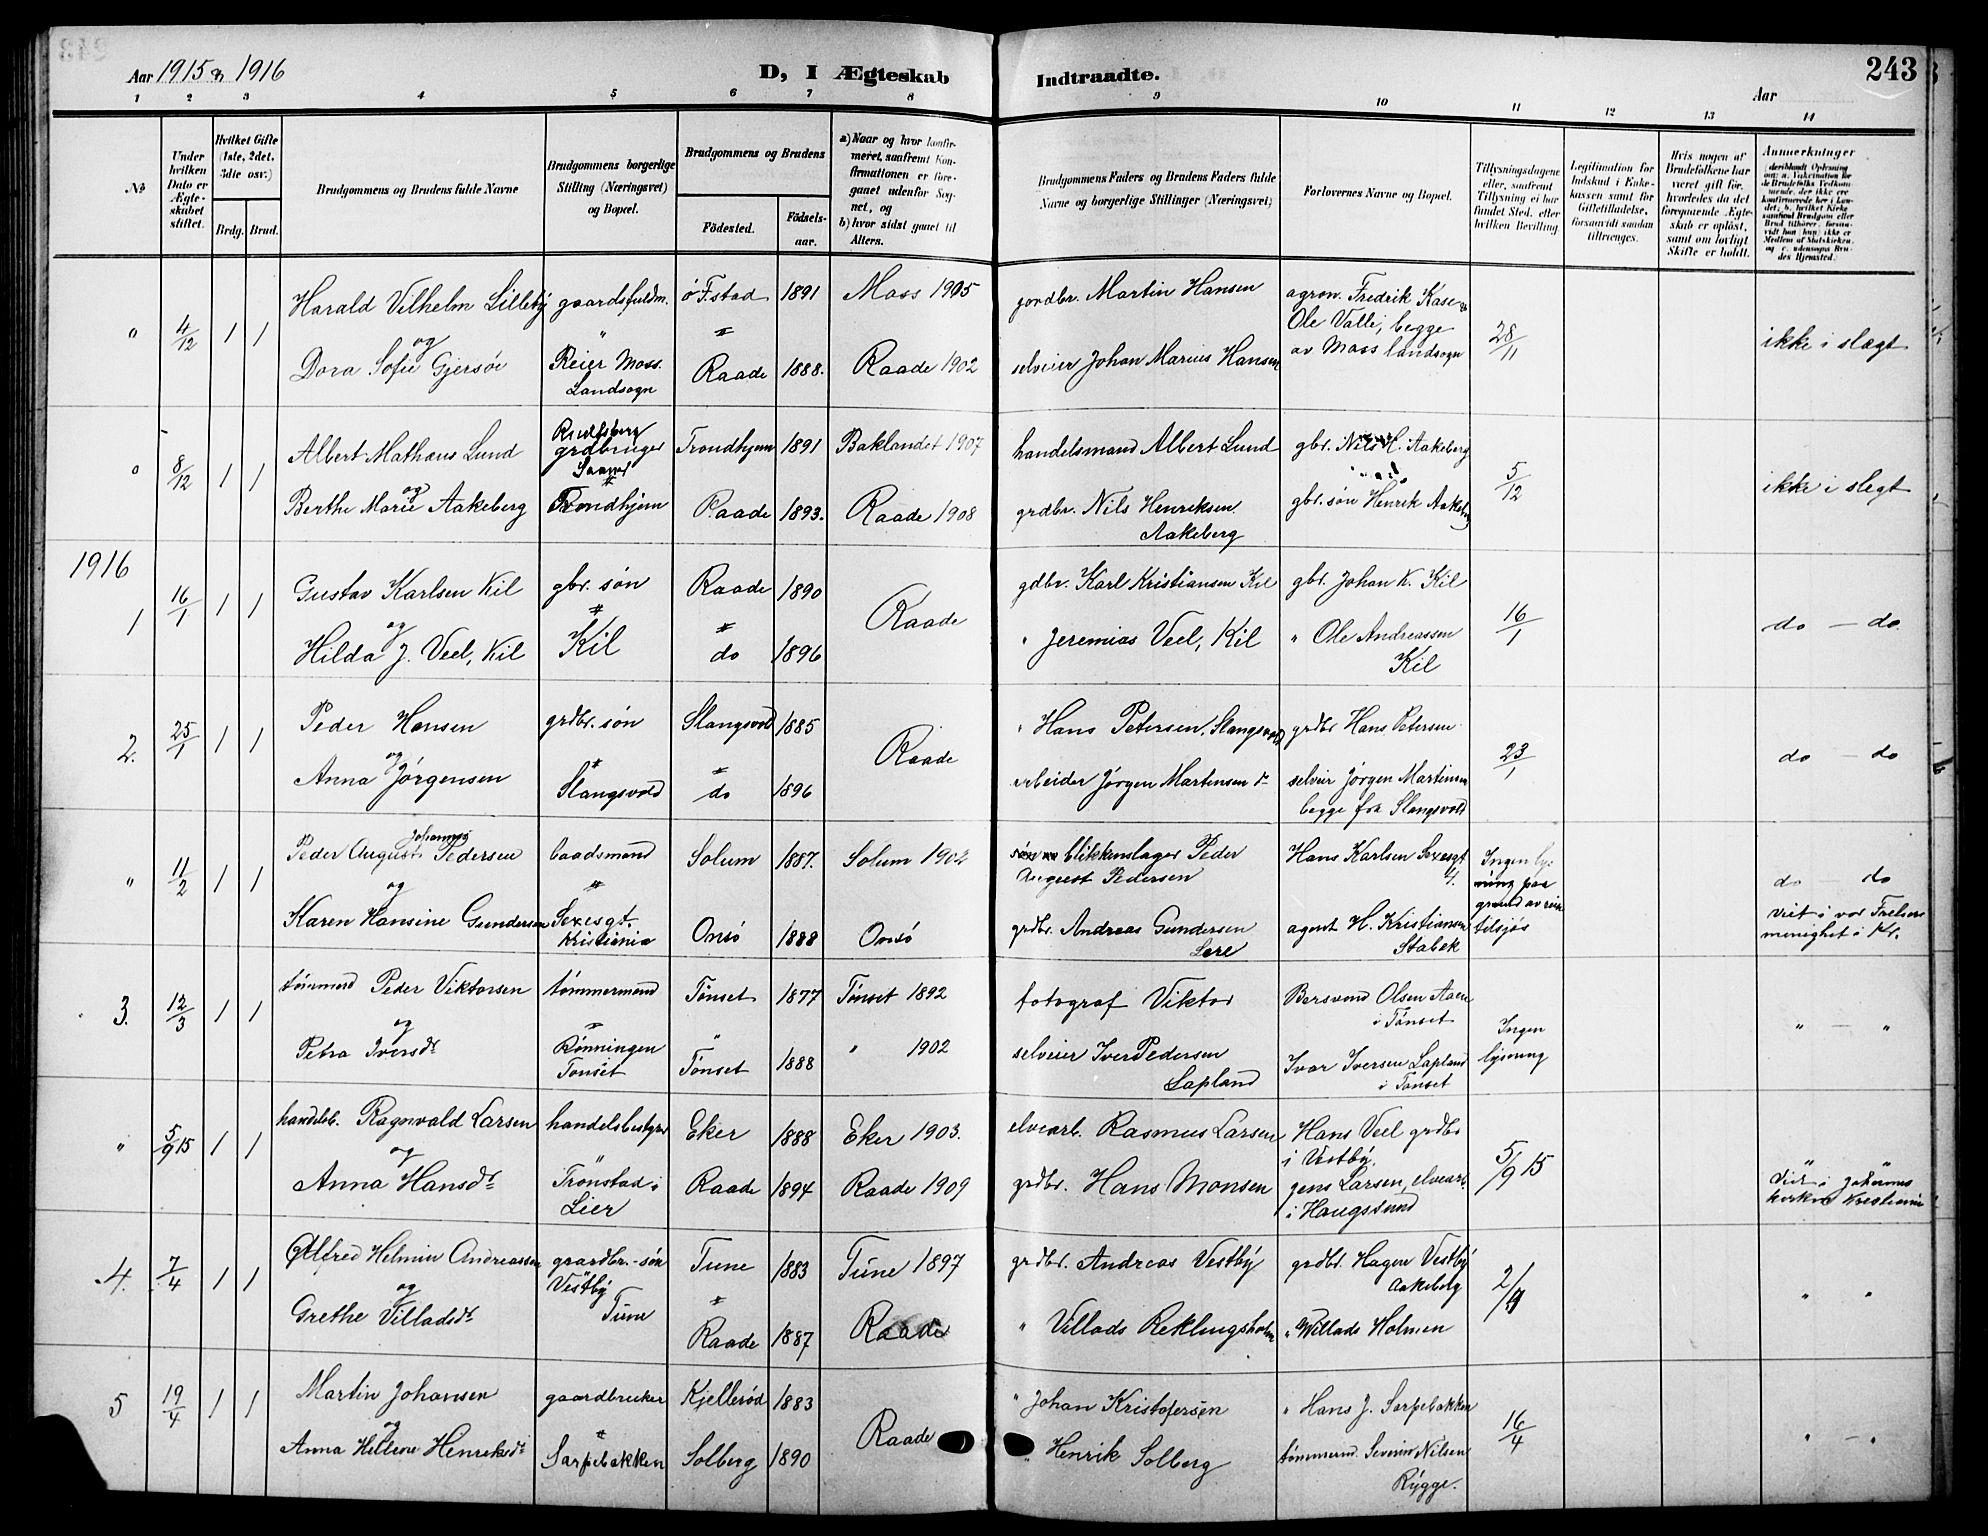 Aar 1915 & 1916
D, I Ægteskab
Indtraadte.
Aar
243
1 2 3 4 5 6 7 8 9 10 11 12 13 14
No
Under hvilken Dato er Ægteskabet stiftet.
Hvilket Gifte (1ste, 2det, 3die osv.)
Brdg. Brud.
Brudgommens og Brudens fulde Navne
Brudgommens borgerlige Stilling (Næringsvei) og Bopæl.
Brudgommens og Brudens
Födested.
Födselsaar.
a) Naar og hvor konfirmeret, saafremt Konfirmationen er foregaaet udenfor Sognet, og
b) hvor sidst gaaet til Alters.
Brudgommens Faders og Brudens Faders fulde Navne og borgerlige Stillinger (Næringsvei)
Forlovernes Navne og Bopæl.
Tillysningsdagene eller, saafremt Tillysning ei har fundet Sted, efter hvilken Bevilling
Legitimation for Indskud i Enkekassen samt for Giftetilladelse, forsaavidt saadan tiltrænges.
Hvis nogen af Brudefolkene har været gift för, hvorledes da det foregaaende Ægteskab er oplöst, samt om lovligt Skifte er holdt.
Anmærkninger
" 4/12 1 1 Harald Vilhelm Lilleby gaardsfuldm. ø F.stad 1891 Moss 1905 jordbr. Martin Hansen agron. Fredrik Kase &
Ole Valle, begge
av Moss landsogn 28/11 ikke i slægt
og
Dora Sofie Gjersøe Reier Moss. Landsogn Raade 1888. Raade 1902 selveier Johan Marius Hansen
" 8/12 1 1 Albert Mathæus Lund grdbruger Trondhjem 1891 Baklandet 1907 handelsmand Albert Lund gbr. Nils H. Aakeberg 5/12 ikke i slegt
og
Berthe Marie Aakeberg Trondhjem Raade 1893. Raade 1908 grdbr. Nils Henriksen Aakeberg gbr. søn Henrik Aakeberg
1916
1 16/1 1 1 Gustav Karlsen Kil gbr. søn Raade 1890 Raade gdbr. Karl Kristiansen Kil gbr. Johan K. Kil 16/1 do — do
og
Hilda J. Veel, Kil Kil do 1896 " Jeremias Veel, Kil " Ole Andreassen Kil
2. 25/1 1 1 Peder Hansen grdbr. søn Slangsvold 1885 Raade " Hans Petersen, Slangsvold grdbr Hans Petersen 23/1 do — do
og
Anna Jørgensen Slangsvold do 1896 arbeider Jørgen Martinsen selveir Jørgen Martinsen
begge fra Slangsvold
" 11/2 1 1 Peder August Johannes Pedersen baadsmand Solum 1887. Solum 1902 blikkenslager Peder August Pedersen Hans Karlsen Sexesgt 4. Ingen lysning paa grund av reise tilsjøs do do
viet i vor Frelsers menighet i Kr.
og
Karen Hansine Gundersen Sexesgt. Kristiania Onsø 1888 Onsø grdbr. Andreas Gundersen Lere agent H. Kristiansen Stabek
3. 12/3 1 1 tømmerd Peder Viktorsen tømmermand Tönset 1877 Tönset 1892 fotograf Viktor Bersvend Olsen Aaen i Tönset Ingen lysning " — "
og
Petra Iversdt Rönningen Tönset Tönset 1888 " 1902 selveier Iver Pedersen Lapland Ivar Iversen Lapland i Tönset
" 5/9 15 1 1 handelsb. Ragnvald Larsen handelsbestyrer Eker 1888 Eker 1903. elvearb. Rasmus Larsen Hans Veel grdbr i Vestby. 5/9 15 Viet i Johannes kirken Kristiania
og
Anna Hansdt Trönstad i Lier Raade 1894 Raade 1909 grdbr. Hans Monsen Jens Larsen, elvearb. i Haugssund
4. 7/4 1 1 Alfred Helmin Andreassen gaardbr.-søn Vestby Tune Tune 1883 Tune 1897 grdbr. Andreas Vestby grdbr. Hagen Vestby Aakeberg 2/4 " "
og
Grethe Villadsdt Raade 1887 Raade " Villads Reklingsholm " Willads Holmen
5 19/4 1 1 Martin Johansen gaardbruker Kjellerød 1883 Raade " Johan Kristofersen " Hans J. Sarpebakken 16/4 " — "
og
Anna Helene Henriksdt Sarpebakken Solberg 1890 " Henrik Solberg tømmermd. Severin Nilsen Rygge.